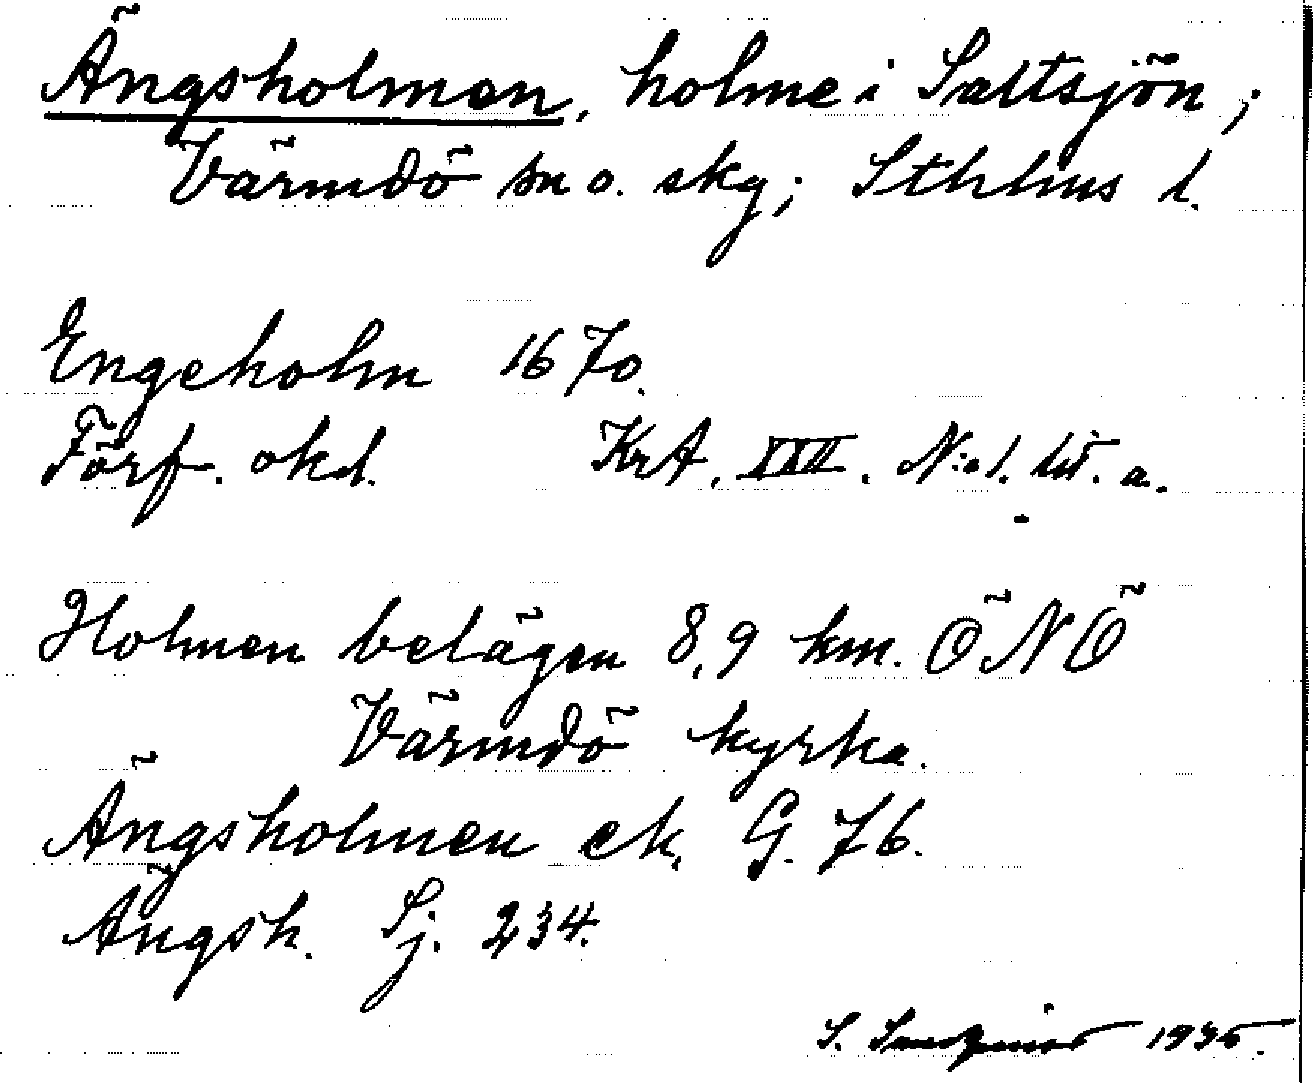 Ängsholmen, holme i Saltsjön;
Värmdö sn o. skg; Sthlms l.
Engeholm 1670.
Förf. okd. KrA. XXII. N:o 1. litt. a.
Holmen belägen 8,9 km. ÖNÖ
Värmdö kyrka.
Ängsholmen ek. G. 76.
Ängsh. Sj. 234.
S. 1935.